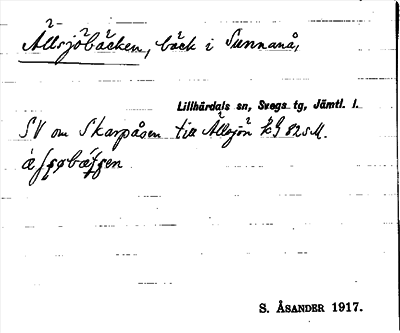 Ållsjöbäcken, bäck i Sunnanå,
Lillhärdals sn, Svegs tg, Jämtl. l.
SV om Skarpåsen till Ållsjön
S. ÅSANDER 1917.